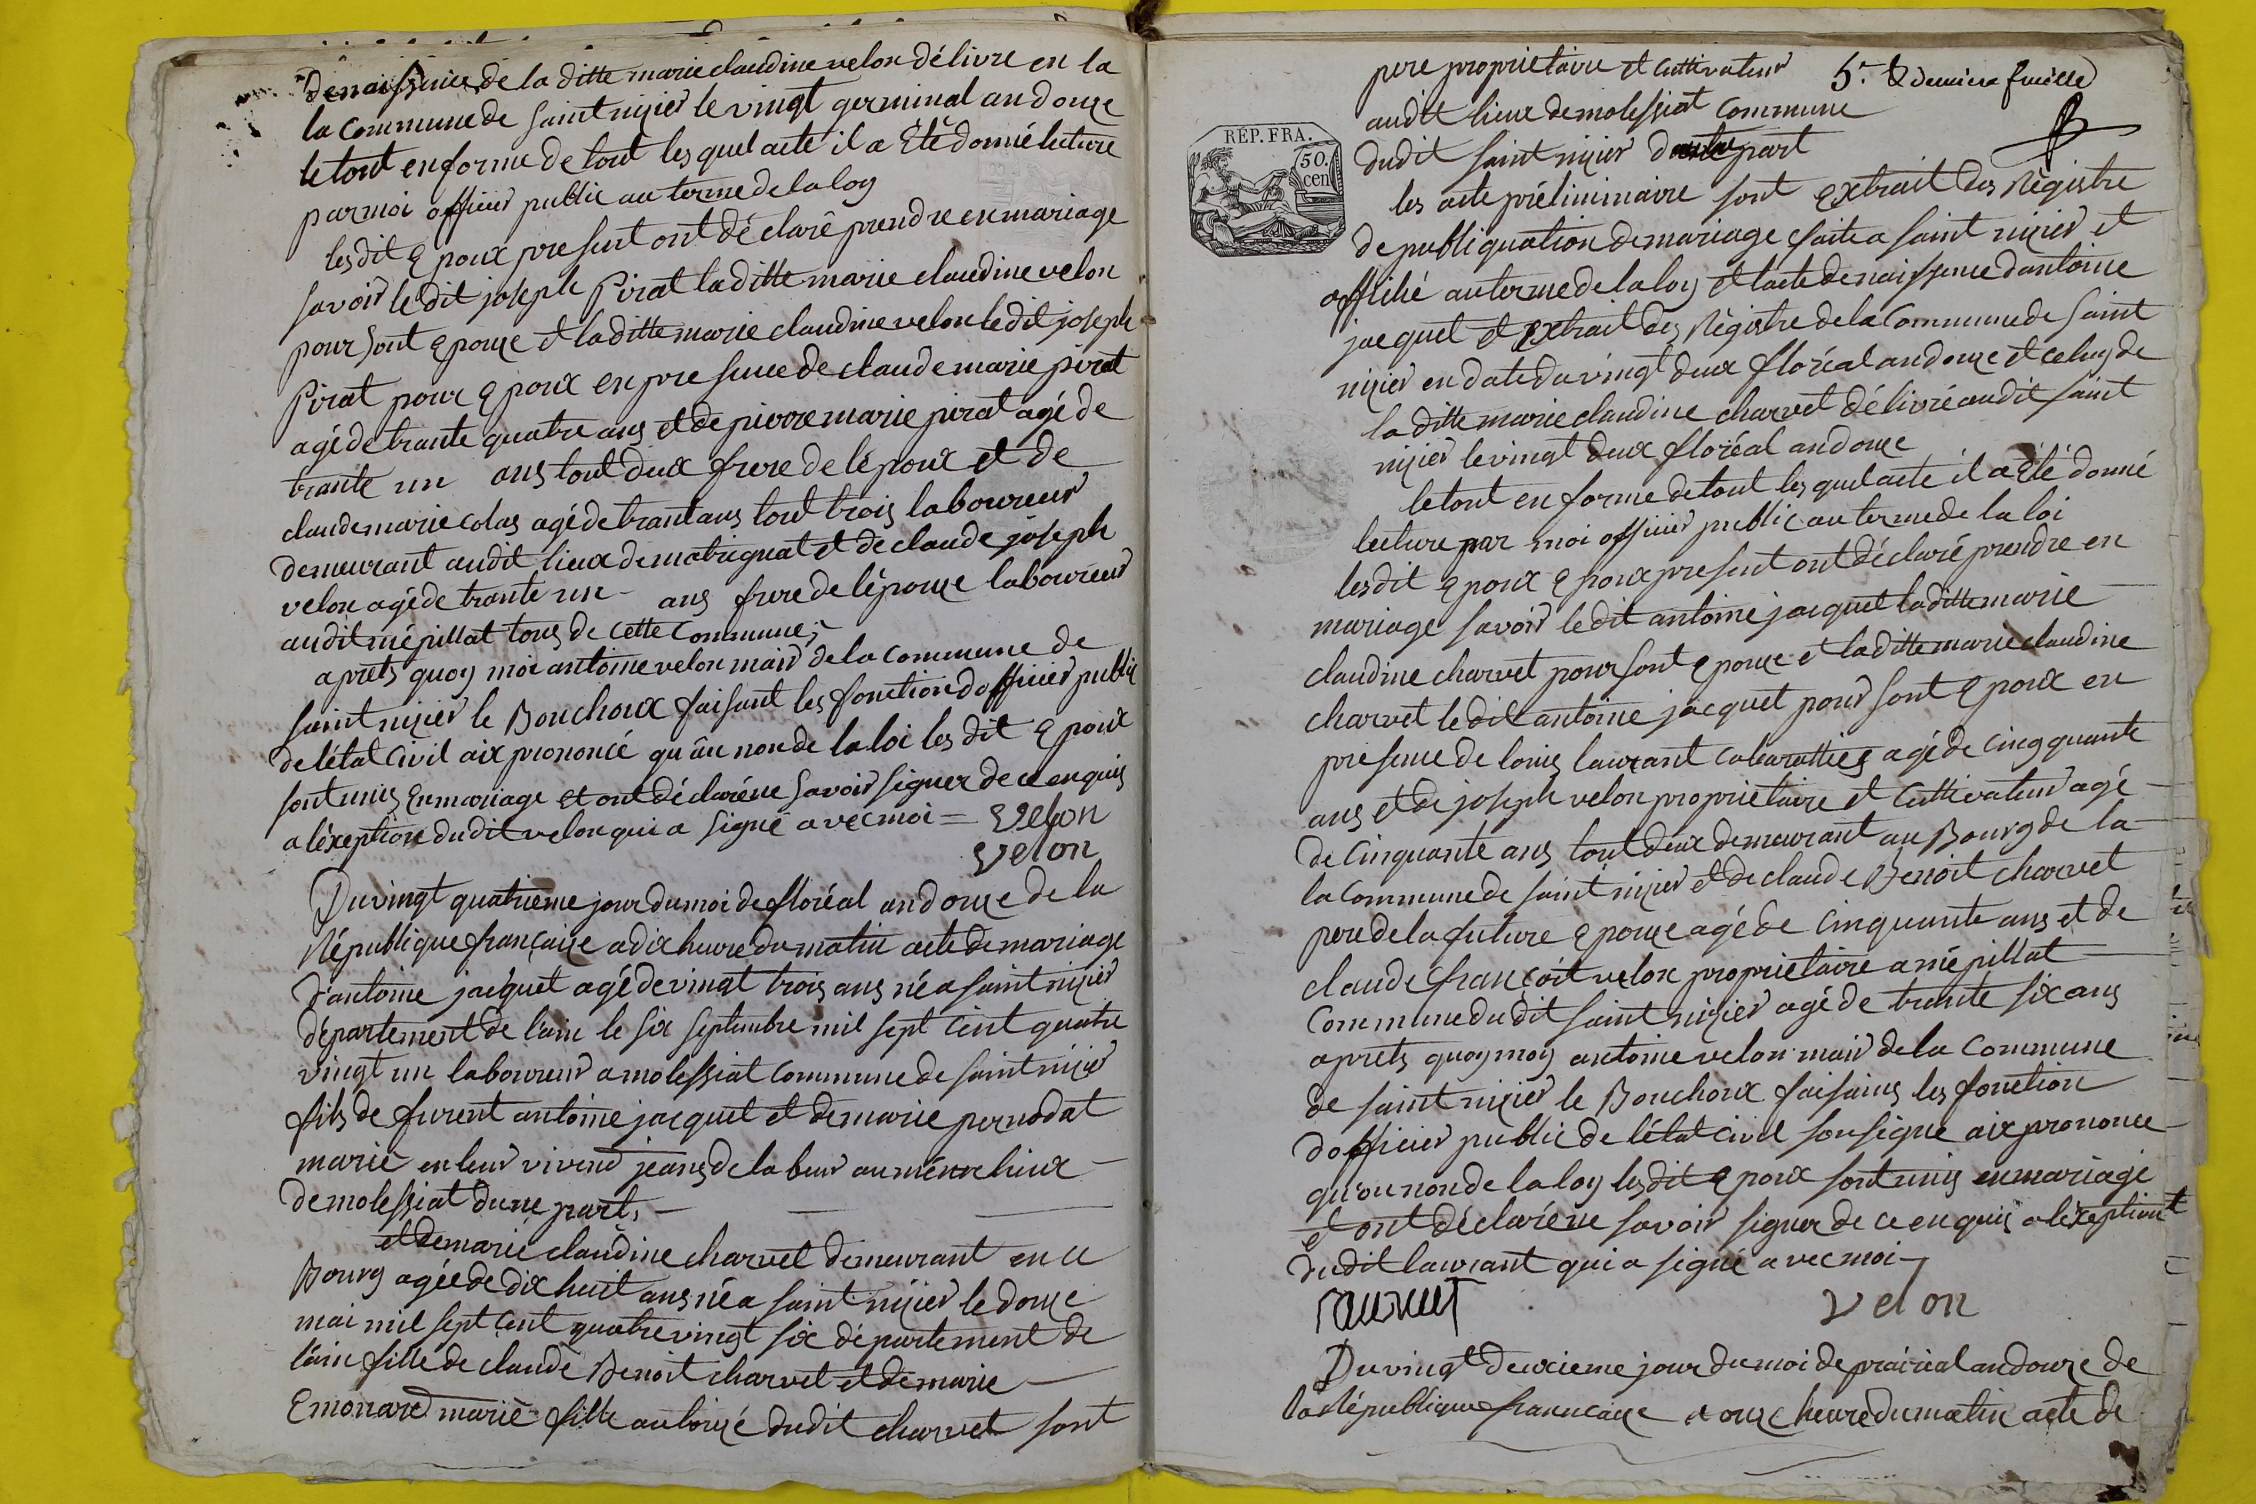 denaissence de la ditte marie claudine velon délivre en la
la commune de saint nizier le vingt germinal an douze
le tout en forme de tout les quel acte il a été donné lecture
par moi officier public au terme de la loy
lesdit epoux present ont déclaré prendre en mariage
savoir le dit joseph Pirat la ditte marie claudine velon
pour sont epouze et la ditte marie claudine velon le dit joseph
Pirat pour epoux en presence de claude marie pirat
agé de trante quatre ans et de pierre marie pirat agé de
trante un ans tout deux frere de lépoux et de
claude marie colas agé de trant ans tout trois laboureur
demeurant audit lieux de matrignat et de claude joseph
velon agé de trante un - ans frere de lépouze laboureur
audit mépillat tous de cette commune;
aprêts quoy moi antoine velon mair de la commune de
saint nizier le Bouchoux faisant les fonction dofficier public
de létat civil aix prononcé qu'au non de la loi les dit epoux
sont unis en mariage et ont déclaré ne savoir signer de ce enquis
a léxeption dudit velon qui a signé avec moi = velon
velon
Du vingt quatrieme jour du moi de floréal an douze de la
République française a dix heure du matin acte de mariage
d'antoine jacquet agé de vingt trois ans né a saint nizier
département de l'ain le six septembre mil sept cent quatre
vingt un laboureur a molessiat commune de saint nizier
fils de furent antoine jacquet et de marie pernodat
marié en leur vivend jeans de labeur au même lieux
de molessiat dune part,
et de marie claudine charvet demeurant en ce
Bourg agée de dix huit ans né a saint nizier le douze
mai mil sept cent quatre vingt six département de
lain fille de claude Benoit charvet et de marie
Emonard marié fille autorizé dudit charvet sont
pere proprietaire et cultivateur
5.e & derniere fueille
audit lieux de molessiat commune
dudit saint nizier dautre part
RÉP. FRA.
50.
cen
les acte préliminaire sont extrait des Régistre
de publiquation de mariage faite a saint nizier et
affiché au terme de la loy et lacte de naissence dantoine
jacquet et extrait des Régistre de la commune de saint
nizier en date du vingt deux floréal an douze et celuy de
la ditte marie claudine charvet délivré audit saint
nizier le vingt deux floréal an douze
le tout en forme de tout les quel acte il a été donné
lecture par moi officier public au terme de la loi
lesdit epoux epoux present ont déclaré prendre en
mariage savoir le dit antoine jacquet la ditte marie
claudine charvet pour sont epouze et la ditte marie claudine
charvet le dit antoine jacquet pour sont epoux en
presence de louis laurant cabarattier agé de cinqquante
ans et de joseph velon proprietaire et cultivateur agé
de cinquante ans tout deux demeurant au Bourg de la
la commune de saint nizier et de claude Benoit charvet
pere de la future epouze agé de cinquante ans et de
claude françoit velon proprietaire a mépillat
commune dudit saint nizier agé de trante six ans
aprêts quoy moy antoine velon mair de la commune
de saint nizier le Bouchoux faisaint les fonction
dofficier public de létat civil sousigné aix prononce
qu'au non de la loy lesdit epoux sont unis en mariage
et ont déclaré ne savoir signer de ce enquis a léxeptiont
dudit laurant qui a signé avec moi
velon
Du vingt deuxieme jour du moi de prairial an douze de
la République francaize a onze heure du matin acte de